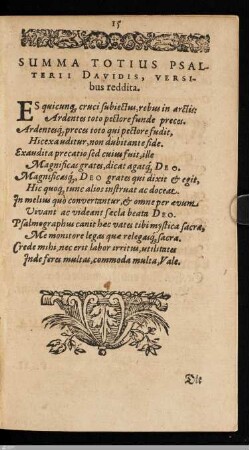 15
SUMMA TOTIUS PSAL-
TERII DAVIDIS, VERSI-
bus reddita.
ES quicunq, cruci subiectus, rebus in arctis:
Ardentes toto pectore funde preces.
Ardentesq, preces toto qui pectore fudit,
Hic exauditur, non dubitante fide.
Exaudita precatio sed cuius fuit, ille
Magnificas grates, dicat agatq, DEO.
Magnificasq, DEO grates qui dixit & egit,
Hic quoq, tunc alios instruat ac doceat
In melius quò convertantur, & omne per ævum
Vivant ac videant secla beata DEO.
Psalmographus canit hæc vates tibi mystica sacra,
Me monitore legas quæ relegasq, sacra.
Crede mihi, nec erit labor irritus, utilitates
Inde feres multas, commoda multa, Vale.
Dit